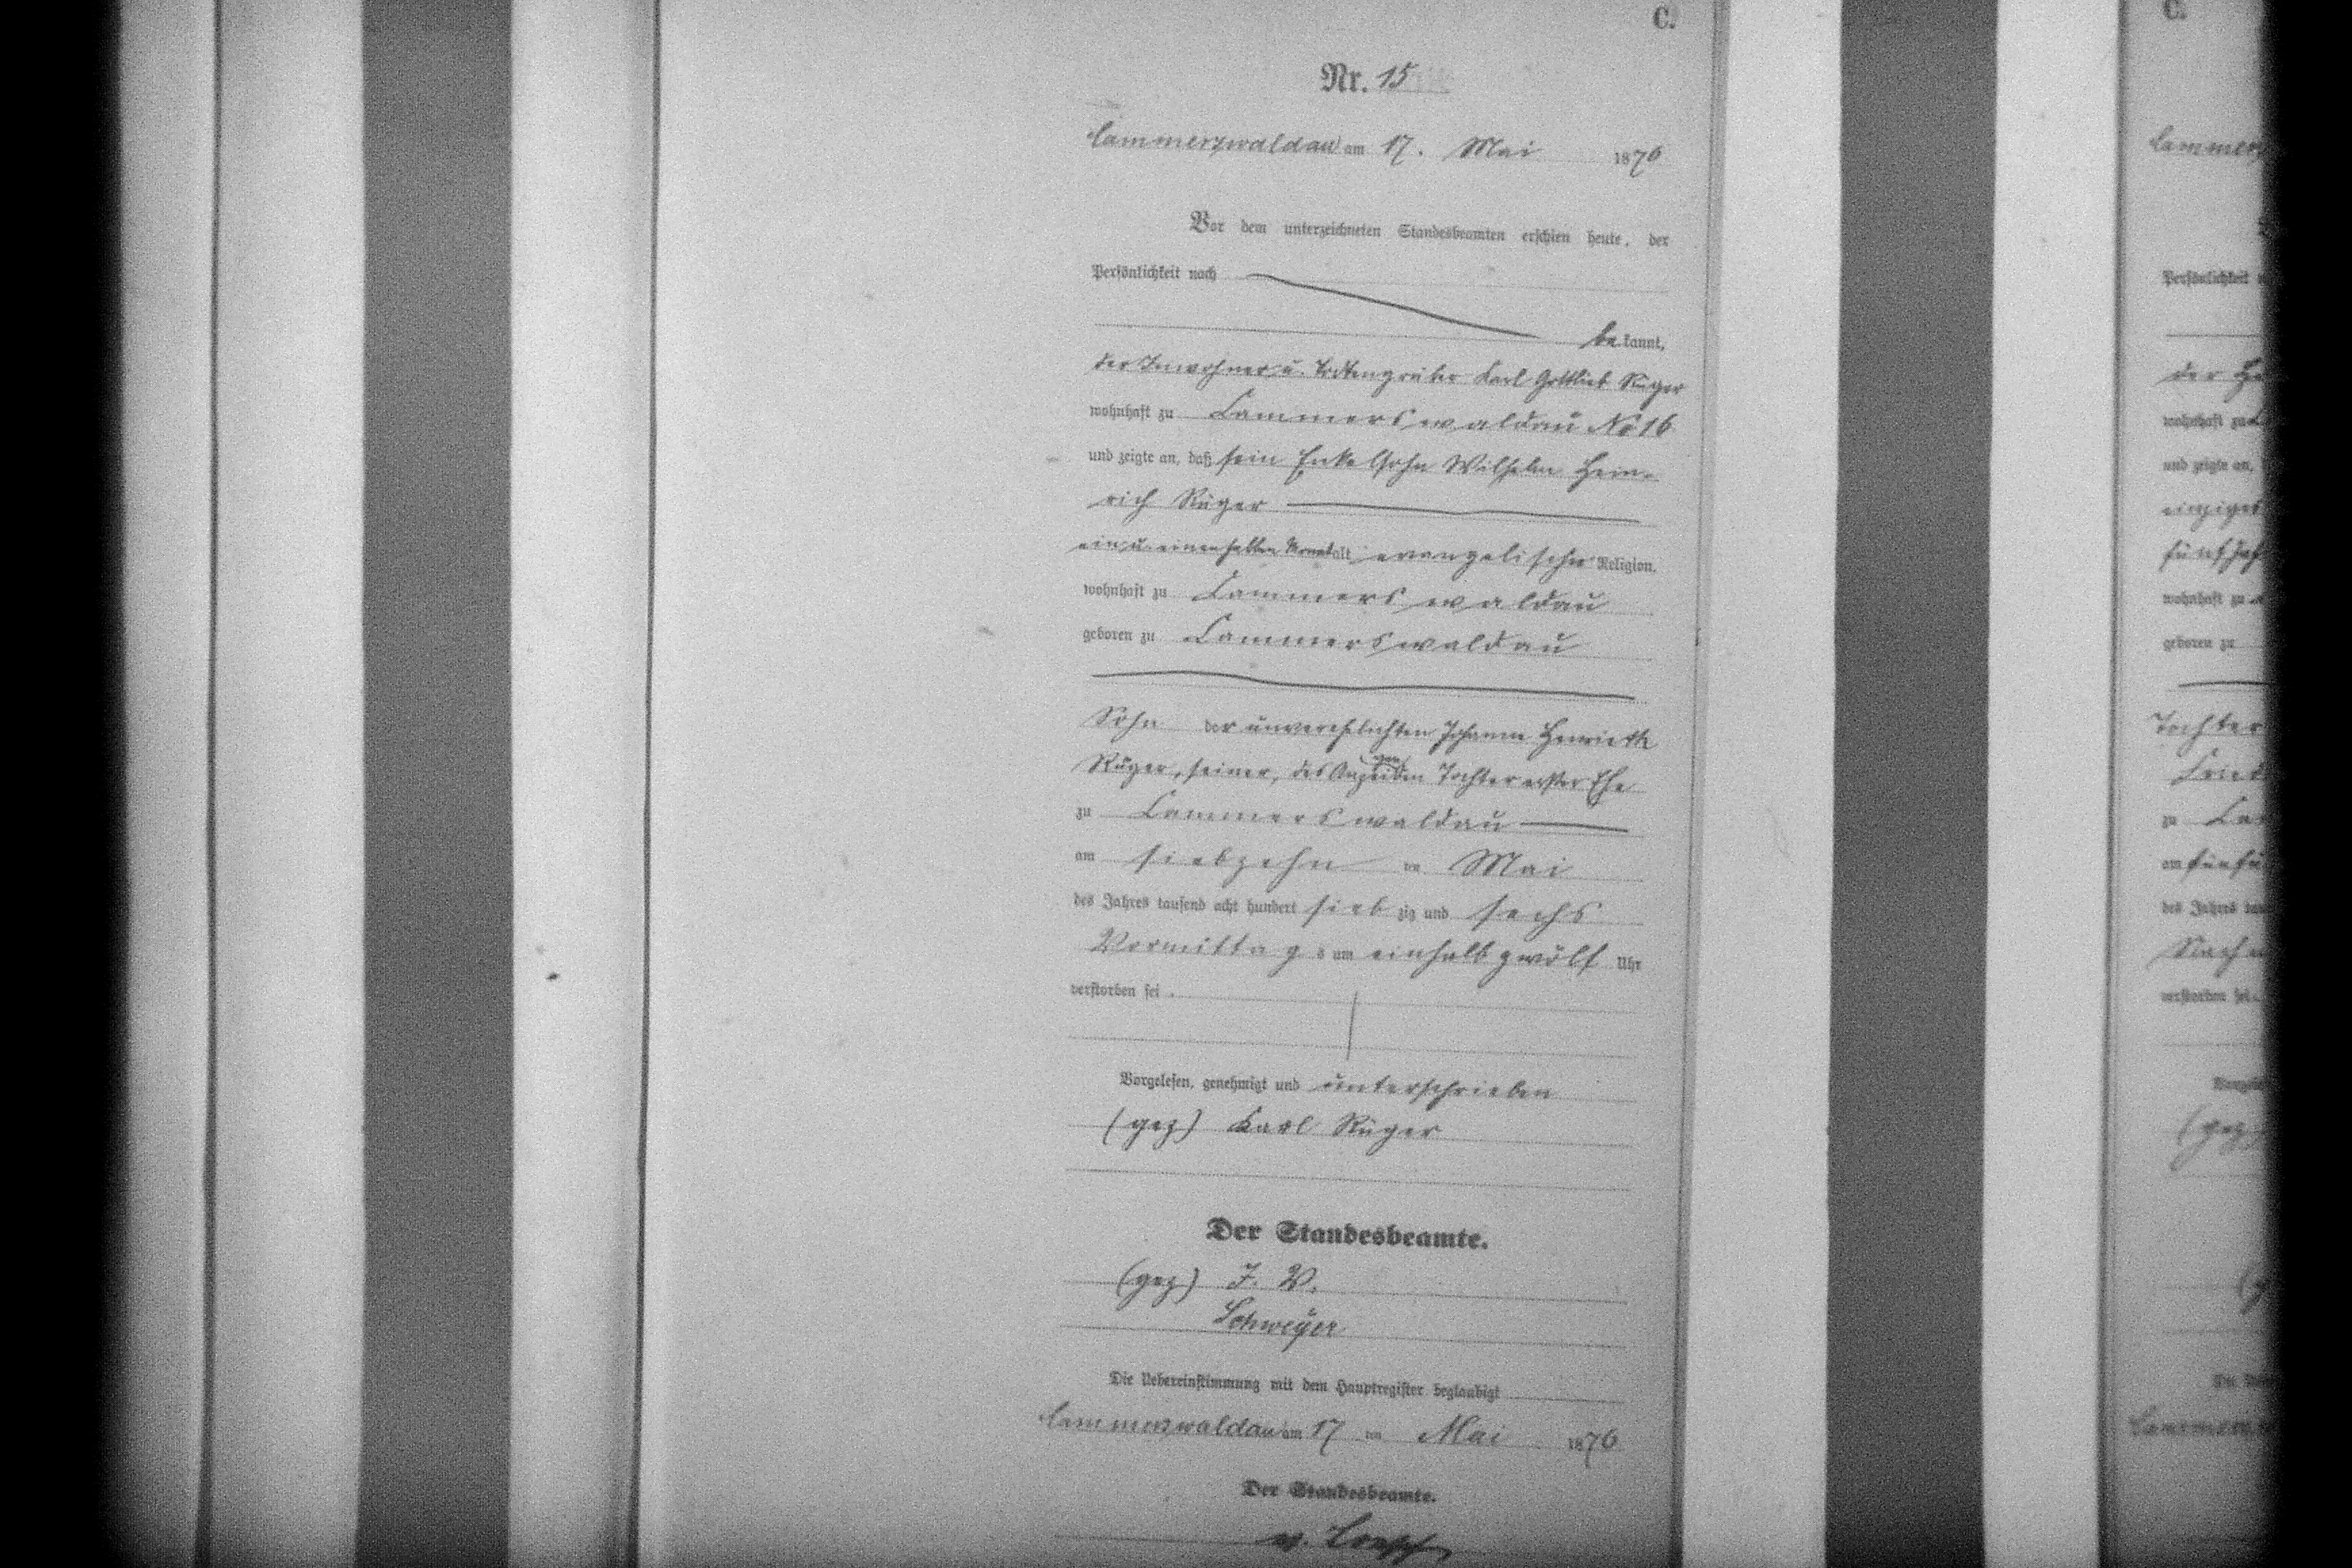 C.
Nr. 15
Cammerswaldau am 17. Mai 1876
Vor dem unterzeichneten Standesbeamten erschien heute, der
Persönlichkeit nach
bekannt,
der Inwohner u. Todtengräber Karl Gottlieb Rüger
wohnhaft zu Cammerswaldau No 16
und zeigte an, daß sein Enkelsohn Wilhelm Hein-
rich Rüger
ein u. einen halben Monat alt evangelischer Religion,
wohnhaft zu Cammerswaldau
geboren zu Cammerswaldau
Sohn der unverehelichten Johanne Henriette
Rüger, seiner, des Anzeigenden Tochter erster Ehe
zu Cammerswaldau
am siebzehn ten Mai
des Jahres tausend acht hundert siebzig und sechs
Vormittags um einhalb zwölf Uhr
verstorben sei.
Vorgelesen, genehmigt und unterschrieben
(gez) Karl Rüger
Der Standesbeamte.
(gez) I. V.
Schweyer
Die Uebereinstimmung mit dem Hauptregister beglaubigt
Cammerswaldau am 17 ten Mai 1876
Der Standesbeamte.
v.
C.
Persönlichkeit
der
wohnhaft zu
und zeigte an,
wohnhaft zu
geboren zu
Tochter
zu
am
des Jahres
verstorben sei.
(gez)